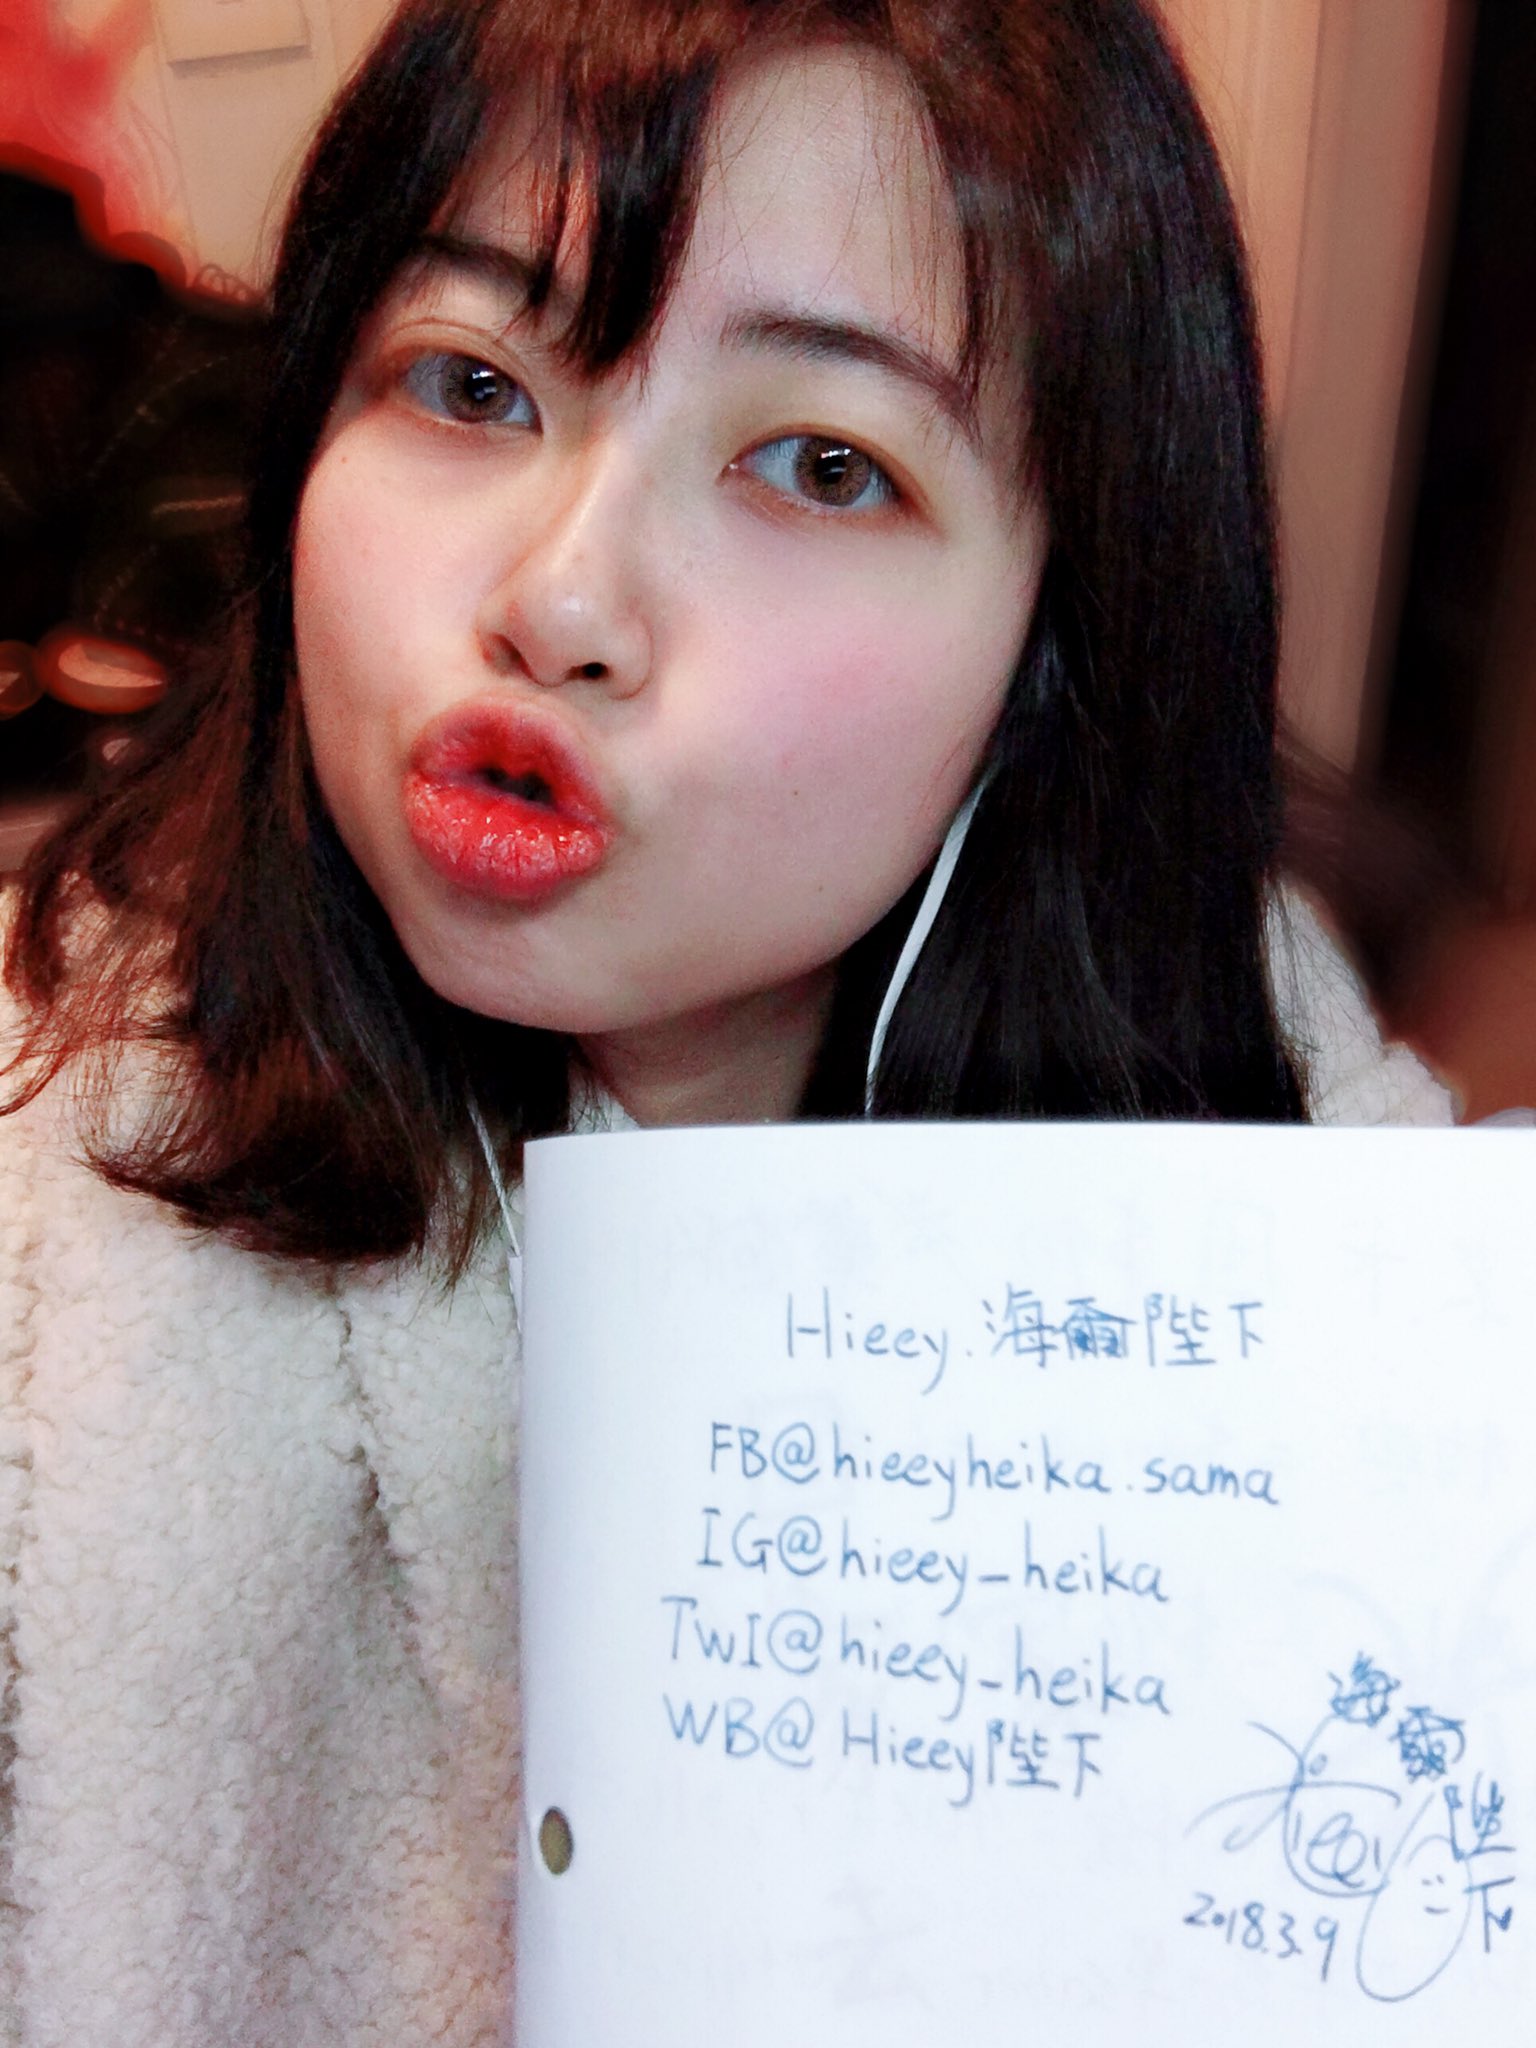 Hieey.海爾陛下
FB@hieeyheika.sama
IG@hieey_heika
TWI@hieey_heika
WB@Hieey陛下
海爾陛下
2018.3.9